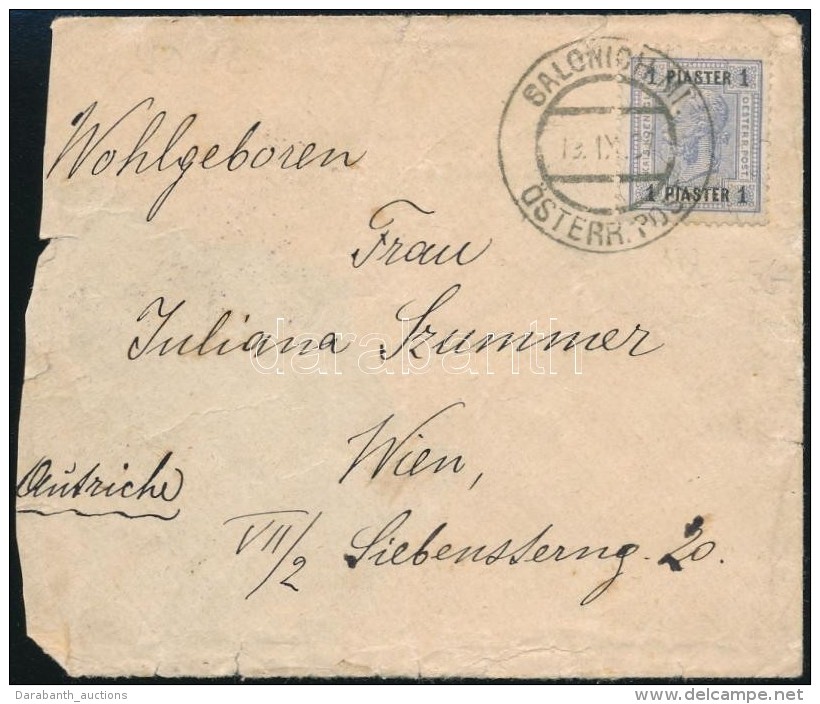 SALONICH
ÖSTERR. POS
13. IX.
1 PIASTER 1
OESTERR. POST
1 PIASTER 1
Wohlgeboren
Frau
Juliana Szummer
darabanth
Wien,
Autriche
VII/2 Siebensterng. 20.
Darabanth_auctions
www.delcampe.net